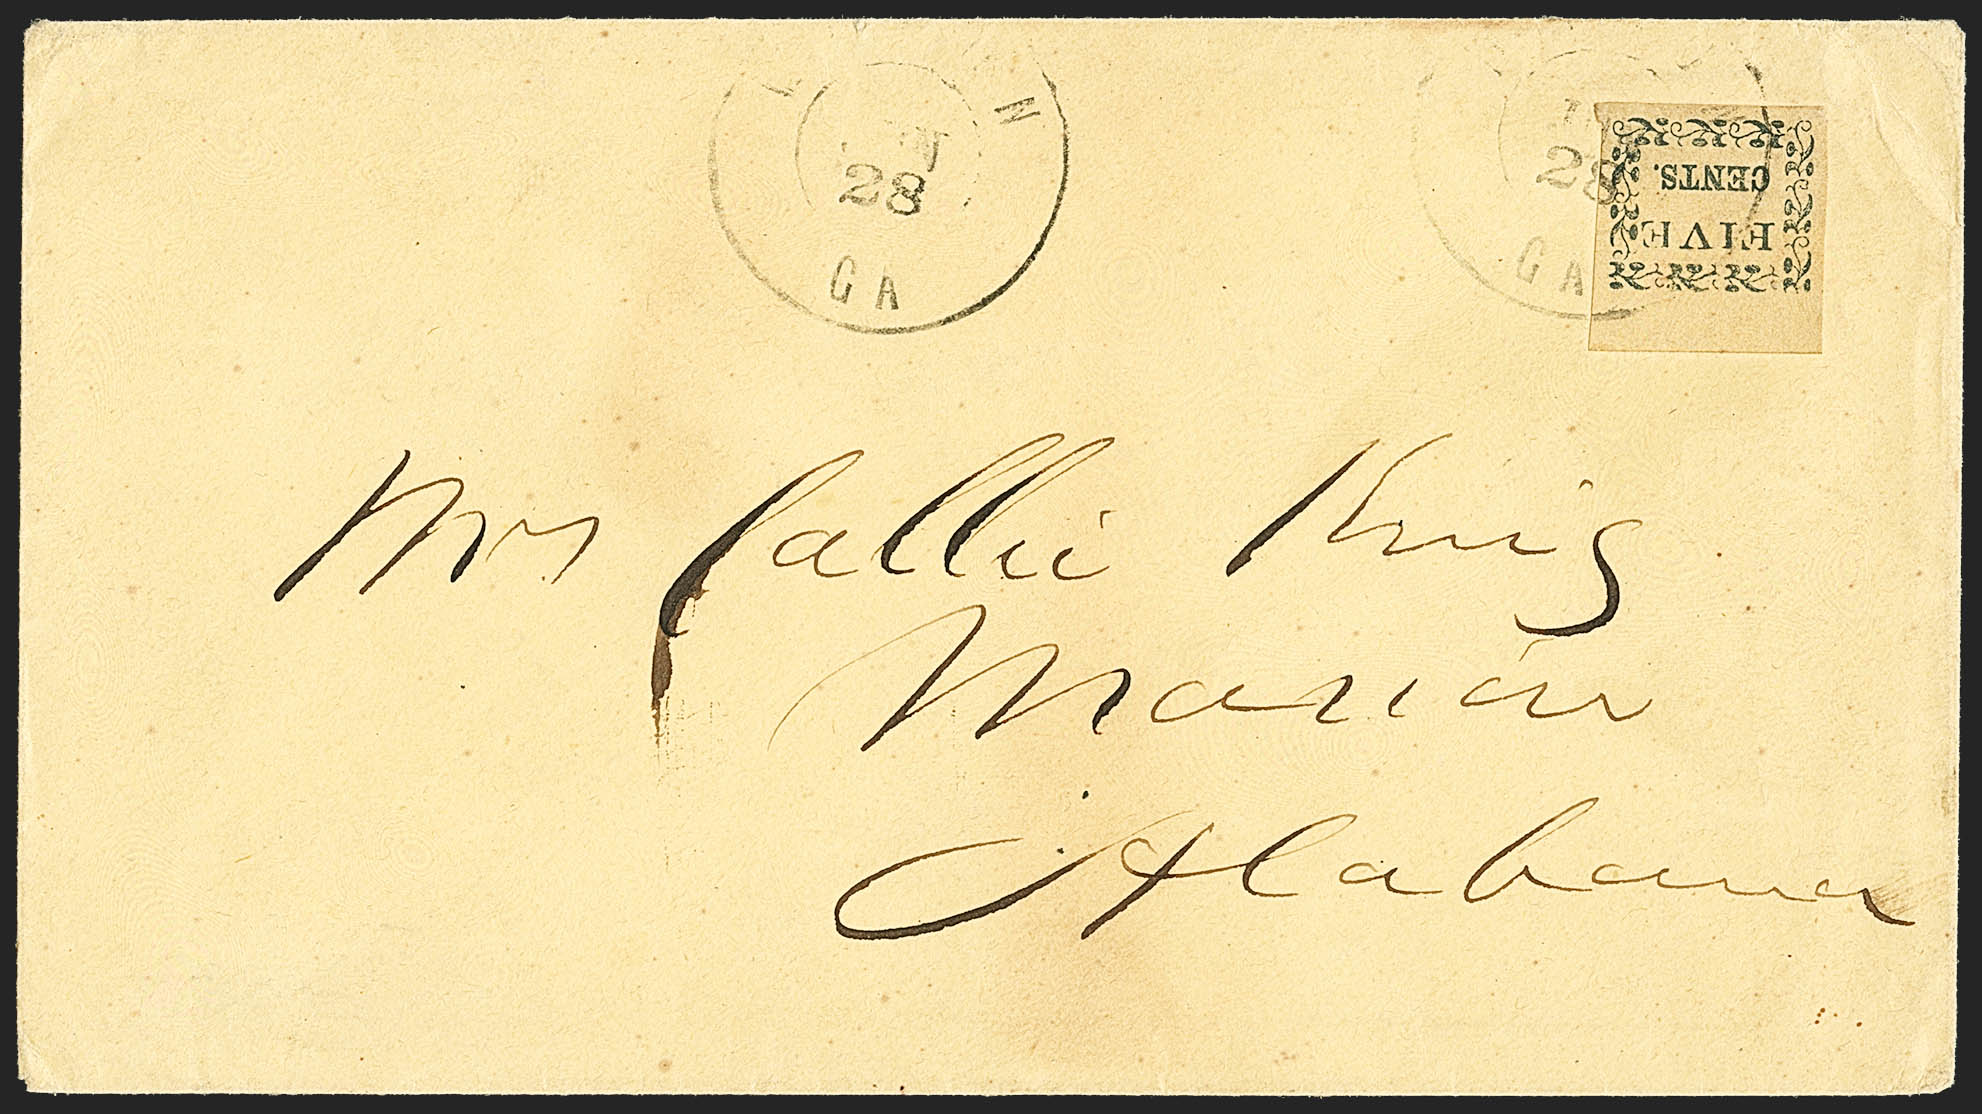 N
28
GA
28
GA
FIVE
CENTS.
Mrs Callie King
Marion
Alabama